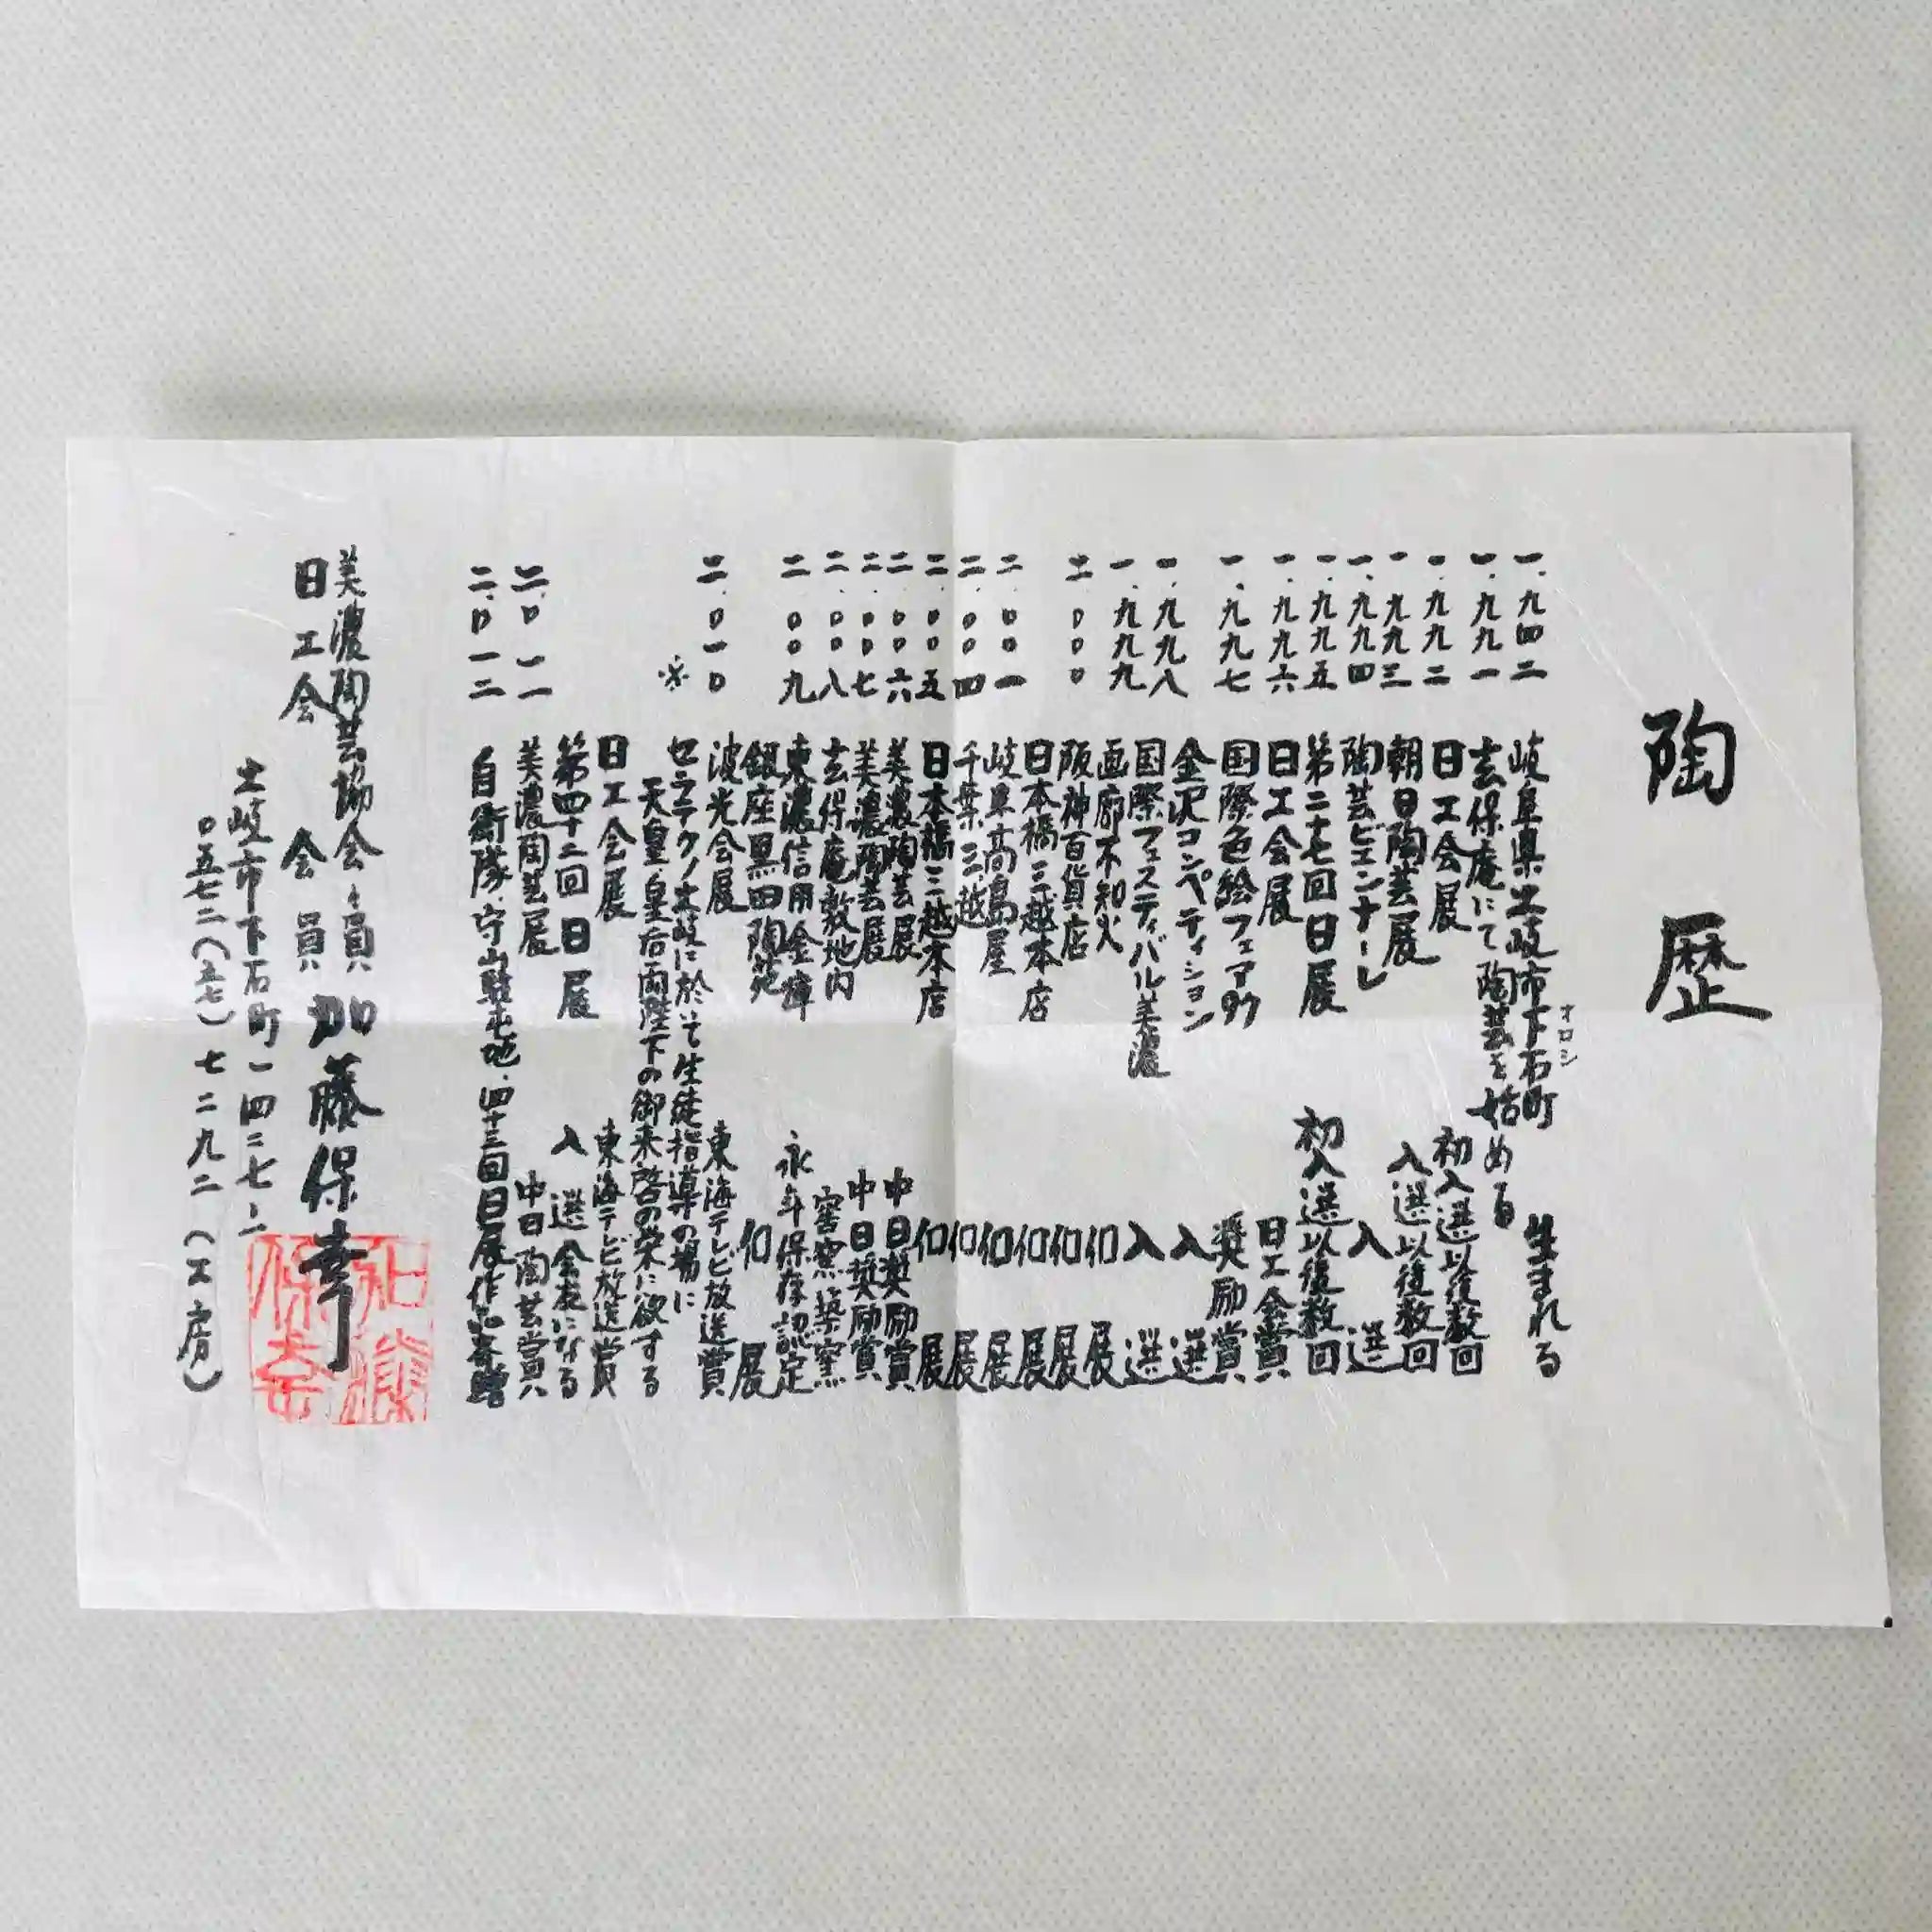 陶歴
一.九四二 岐阜県土岐市下石町 生まれる
オロシ
一.九九一 玄保庵にて陶芸を始める
一.九九二 日工会展 初入選以後数回
一.九九三 朝日陶芸展 入選以後数回
一.九九四 陶芸ビエンナーレ 入選
一.九九五 第二十七回日展 初入選以後数回
一.九九六 日工会展 日工会賞
一.九九七 国際色絵フェア97 奨励賞
金沢コンペティション 入選
一.九九八 国際フェスティバル美濃 入選
一.九九九 画廊不知火 個展
二.000 阪神百貨店 個展
日本橋三越本店 個展
二.00一 岐阜高島屋 個展
二.00四 千葉三越 個展
二.00五 日本橋三越本店 個展
二.00六 美濃陶芸展 中日奨励賞
二.00七 美濃陶芸展 中日奨励賞
二.00八 玄保庵敷地内 窖窯築窯
二.00九 東濃信用金庫 永年保存認定
銀座黒田陶苑 個展
二.0一0 波光会展 東海テレビ放送賞
※ セラテクノ土岐に於いて生徒指導の場に
天皇皇后両陛下の御来啓の栄に欲する
日工会展 東海テレビ放送賞
第四十二回日展 入選 会友になる
二.0一一 美濃陶芸展 中日陶芸賞
二.0一二 自衛隊.守山駐屯地.四十三回日展作品寄贈
美濃陶芸協会々員
日工会 会員 加藤保幸
土岐市下石町一四二七-二
0五七二(五七)七二九二(工房)
加藤保幸